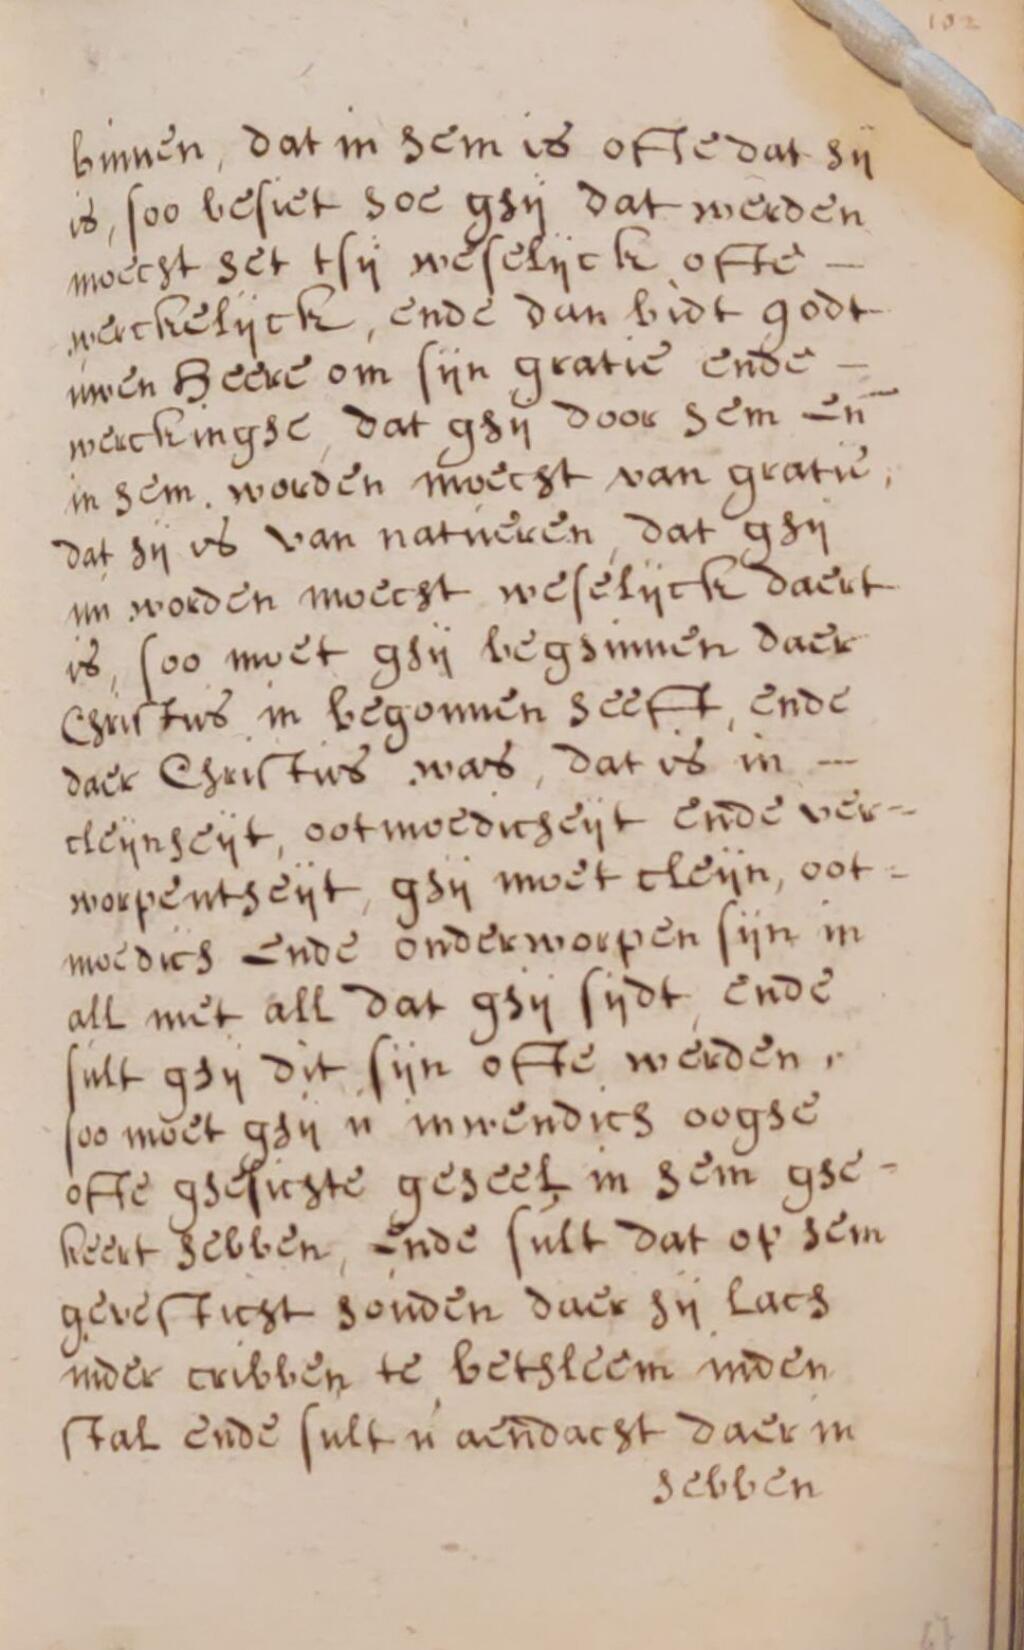 102
binnen, dat in hem is ofte dat hij
is, soo besiet hoe ghij dat werden
moecht het tsij weselijck ofte —
werckelijck, ende dan bidt godt
uwen Heere om sijn gratie ende —
werckinghe, dat ghij door hem en̄
in hem. worden moecht van gratie,
dat hij is van natueren, dat ghij
nu worden moecht weselijck daert
is, soo moet ghij beghinnen daer
Christus in begonnen heeft, ende
daer Christus was, dat is in —
cleijnheijt, ootmoedicheijt ende ver-
worpentheijt, ghij moet cleijn, oot-
moedich ende onderworpen sijn in
all met all dat ghij sijdt, ende
sult ghij dit sijn ofte werden,
soo moet ghij u inwendich ooghe
ofte ghesichte geheel in hem ghe-
keert hebben, ende sult dat op hem
gevesticht houden daer hij lach
inder cribben te bethleem inden
stal ende sult u aendacht daer in
hebben